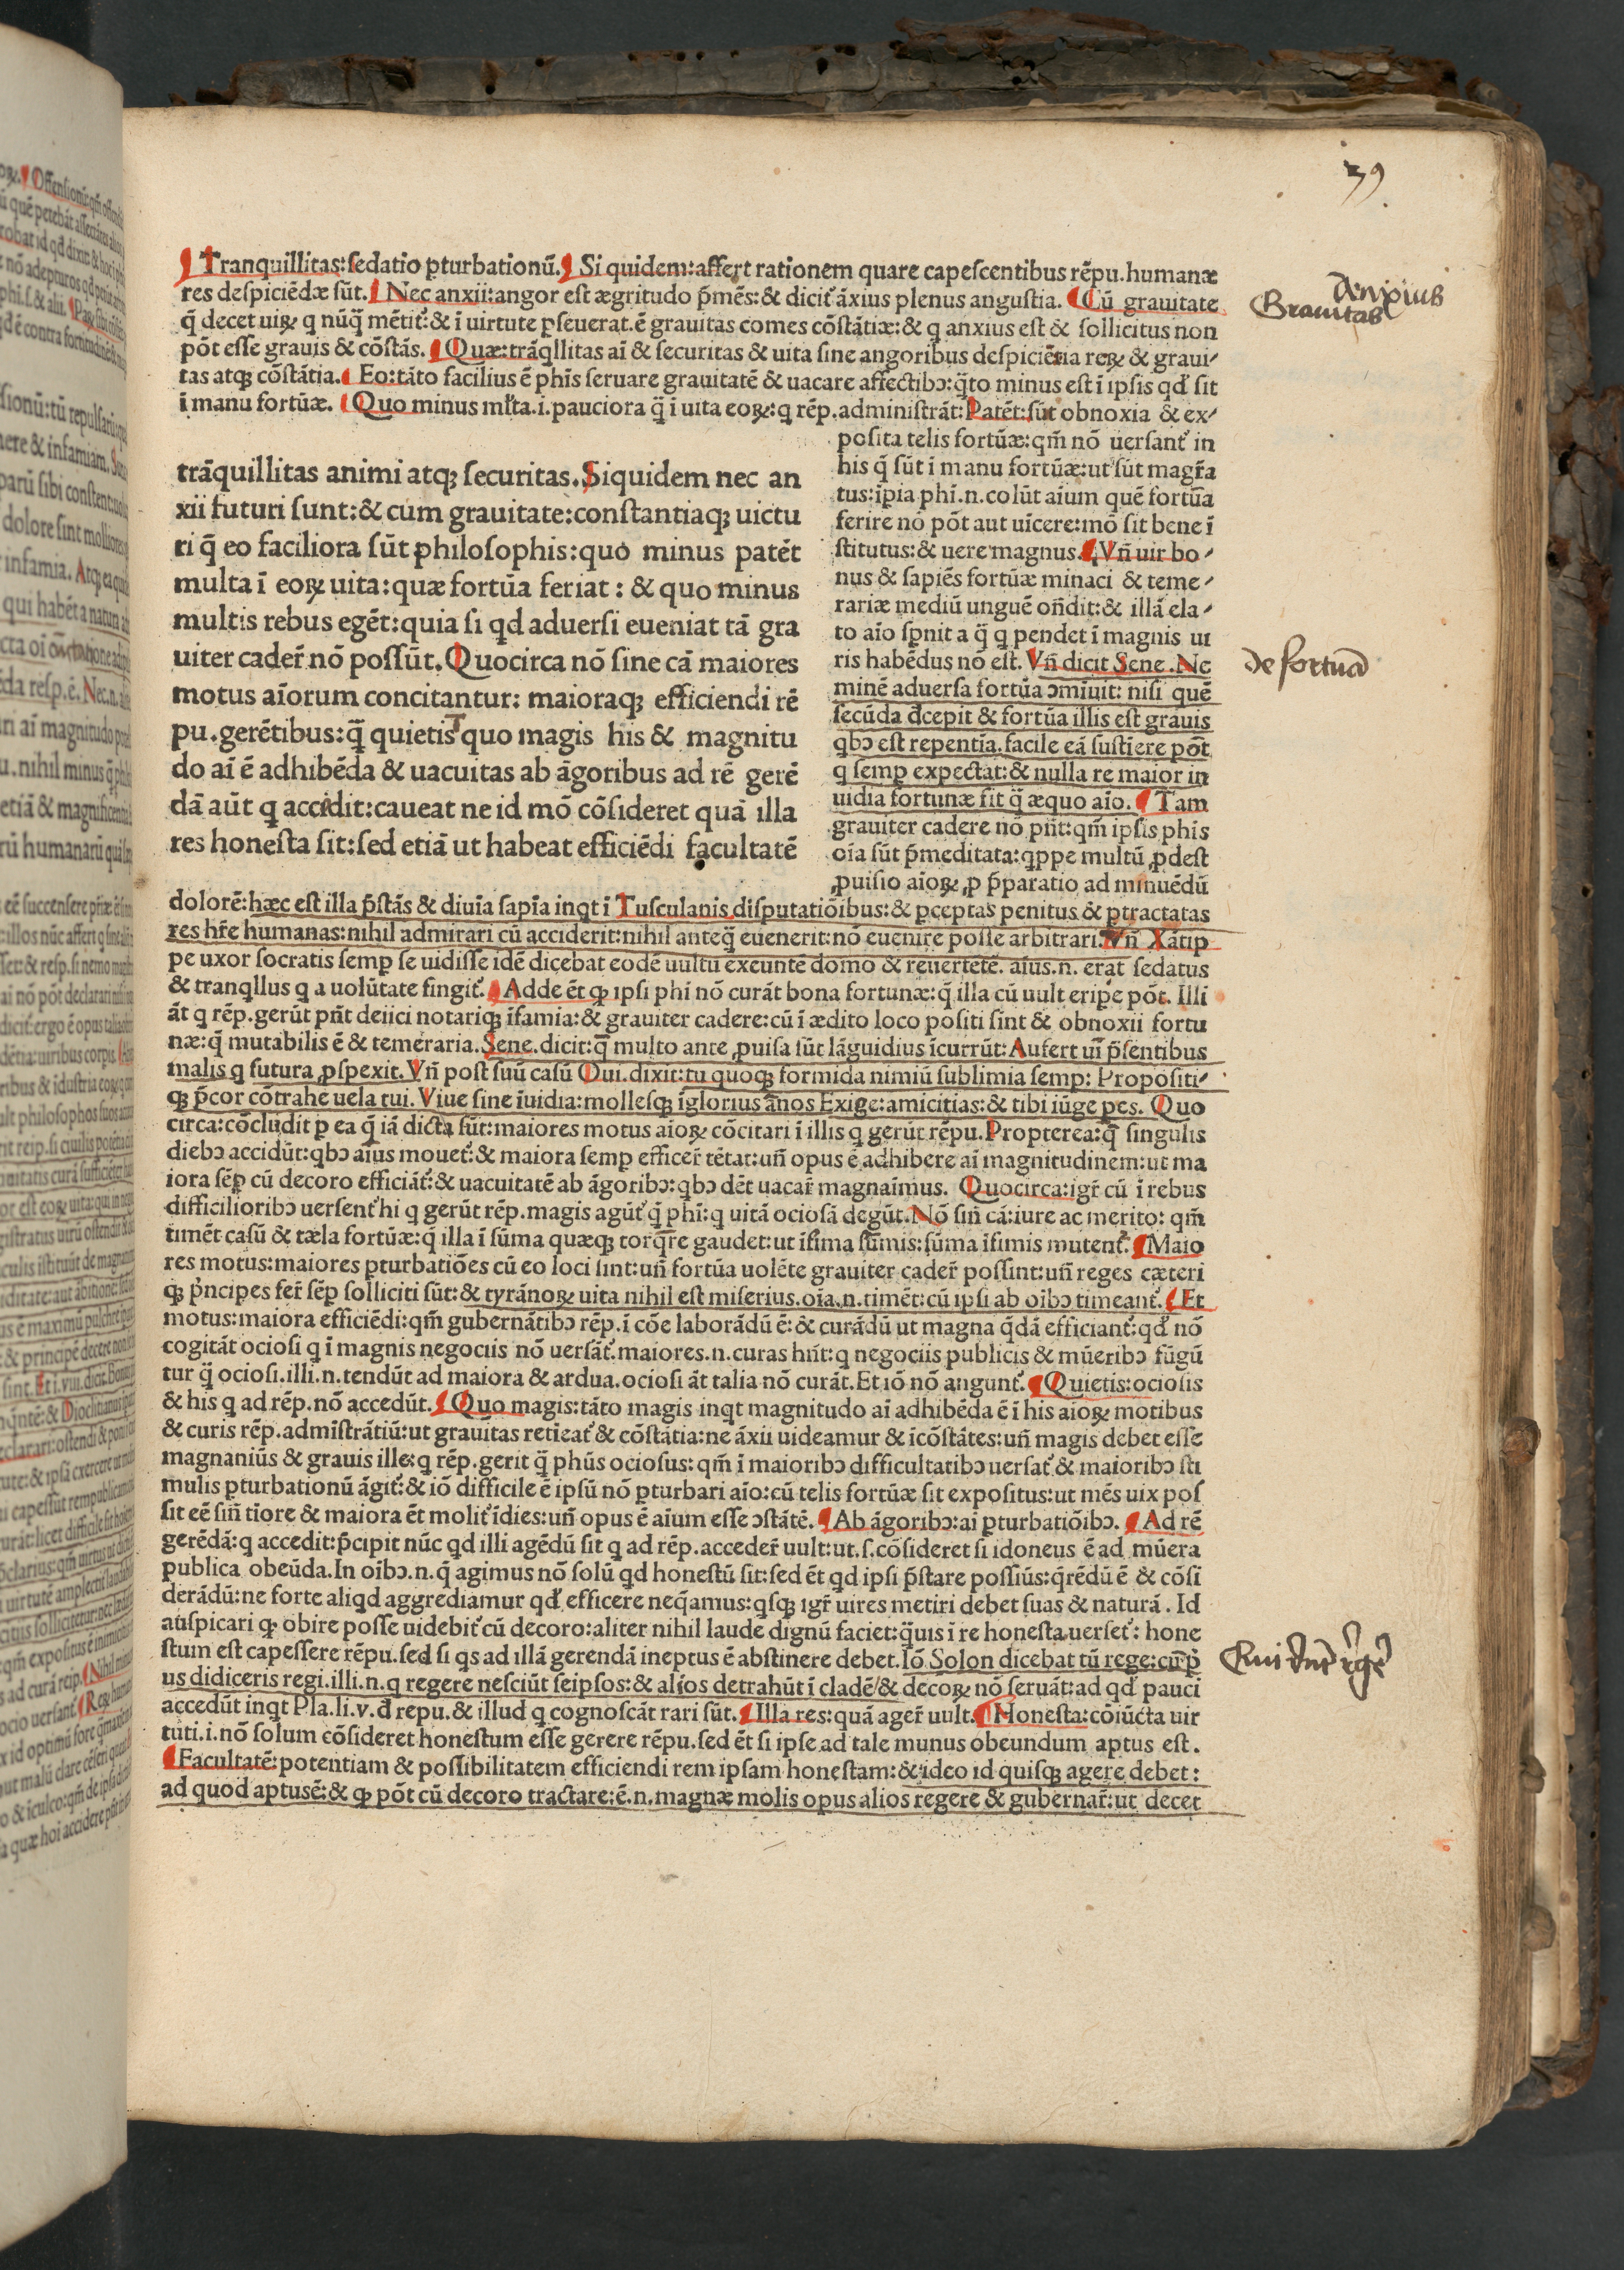 39.
Tranquillitas: sedatio ꝑturbationū. Si quidem: affert rationem quare capescentibus rēpu. humanæ
res despiciēdæ sūt. Nec anxii: angor est ægritudo p̄mēs: & dicit᷑ āxius plenus angustia. Cū grauitate
q̄ decet uiꝝ q nūq̄ mētit᷑: & ī uirtute ꝑseuerat. ē grauitas comes cōstātiæ: & q anxius est & sollicitus non
pōt esse grauis & cōstās. Quæ: trāqllitas aī & securitas & uita sine angoribus despiciētia reꝝ & graui⸗
tas atqꝫ cōstātia. Eo: tāto facilius ē phīs seruare grauitatē & uacare affectibꝰ: q̄to minus est ī ipsis qd̄ sit
ī manu fortūæ. Quo minus mĺta .i. pauciora q̄ ī uita eoꝝ: q rēp. administrāt: Patēt: sūt obnoxia & ex⸗
posita telis fortūæ: qm̄ nō uersant᷑ in
his q̄ sūt ī manu fortūæ: ut sūt magr̄a
tus: īpia phī .n. colūt aīum quē fortūa
ferire nō pōt aut uīcere: mō sit bene ī
stitutus: & uere magnus. Vn̄ uir bo⸗
nus & sapiēs fortūæ minaci & teme⸗
rariæ mediū unguē on̄dit: & illā ela⸗
to aīo sꝑnit a q̄ q pendet ī magnis ui
ris habēdus nō est. Vn̄ dicit Sene. Ne
minē aduersa fortūa ↄmīuit: nisi quē
secūda dcepit & fortūa illis est grauis
qbꝰ est repentīa. facile eā sustīere pōt
q semꝑ expectat: & nulla re maior in
uidia fortunæ fit q̄ æquo aīo. Tam
grauiter cadere nō pn̄t: qm̄ ipsis phīs
oīa sūt p̄meditata: qppe multū ꝓdest
ꝓuisio aīoꝝ ꝓ p̄paratio ad minuēdū
trāquillitas animi atqꝫ securitas. Siquidem nec an
xii futuri sunt: & cum grauitate: constantiaqꝫ uictu
ri q̄ eo faciliora sūt philosophis: quo minus patēt
multa ī eoꝝ uita: quæ fortūa feriat: & quo minus
multis rebus egēt: quia si qd aduersi eueniat tā gra
uiter cader̄ nō possūt. Quocirca nō sine cā maiores
motus aīorum concitantur: maioraqꝫ efficiendi rē
pu. gerētibus: q̄ quietis quo magis his & magnitu
do aī ē adhibēda & uacuitas ab āgoribus ad rē gerē
dā aūt q accidit: caueat ne id mō cōsideret quā illa
res honesta sit: sed etiā ut habeat efficiēdi facultatē
dolorē: hæc est illa p̄stās & diuīa sapīa inqt ī Tusculanis disputatiōibus: & ꝑceptas penitus & ꝑtractatas
res hr̄e humanas: nihil admirari cū acciderit: nihil anteq̄ euenerit: nō euenire posse arbitrari. Vn̄ Xātip
pe uxor socratis semꝑ se uidisse idē dicebat eodē uultu exeuntē domo & reuertētē. aīus .n. erat sedatus
& tranqllus q a uolūtate fingit᷑. Adde ēt ꝙ ipsi phī nō curāt bona fortunæ: q̄ illa cū uult eripe pōt. Illi
āt q rēp. gerūt pn̄t deiici notariqꝫ īfamia: & grauiter cadere: cū ī ædito loco positi sint & obnoxii fortu
næ: q̄ mutabilis ē & temeraria. Sene. dicit: q̄ multo ante ꝓuisa sūt lāguidius īcurrūt: Aufert uī p̄sentibus
malis q futura ꝓspexit. Vn̄ post suū casū Oui. dixit: tu quoqꝫ formida nimiū sublimia semꝑ: Propositi⸗
qꝫ p̄cor cōtrahe uela tui. Viue sine īuidia: mollesqꝫ īglorius annos Exige: amicitias: & tibi iūge pes. Quo
circa: cōcludit ꝑ ea q̄ iā dicta sūt: maiores motus aīoꝝ cōcitari ī illis q gerūt rēpu. Propterea: q̄ singulis
diebꝰ accidūt: qbꝰ aīus mouet᷑: & maiora semꝑ efficer̄ tētat: un̄ opus ē adhibere aī magnitudinem: ut ma
iora sēꝑ cū decoro efficiāt᷑: & uacuitatē ab āgoribꝰ: qbꝰ dēt uacar̄ magnaīmus. Quocirca: igr̄ cū ī rebus
difficilioribꝰ uersent᷑ hi q gerūt rēp. magis agūt᷑ q̄ phī: q uitā ociosā degūt. Nō sin̄ cā: iure ac merito: qm̄
timēt casū & tæla fortūæ: q̄ illa ī sūma quæqꝫ torq̄re gaudet: ut īfima sūmis: sūma īfimis mutent᷑. Maio
res motus: maiores ꝑturbatiōes cū eo loci sint: un̄ fortūa uolēte grauiter cader̄ possint: un̄ reges cæteri
qꝫ p̄ncipes fer̄ sēꝑ solliciti sūt: & tyrānoꝝ uita nihil est miserius. oīa .n. timēt: cū ipsi ab oībꝰ timeant᷑. Et
motus: maiora efficiēdi: qm̄ gubernātibꝰ rēp. ī cōe laborādū ē: & curādū ut magna q̄dā efficiant᷑: qd̄ nō
cogitāt ociosi q ī magnis negociis nō uersāt᷑. maiores .n. curas hn̄t: q negociis publicis & mūeribꝰ fūgū
tur q̄ ociosi. illi .n. tendūt ad maiora & ardua. ociosi āt talia nō curāt. Et iō nō angunt᷑. Quietis: ociosis
& his q ad rēp. nō accedūt. Quo magis: tāto magis inqt magnitudo aī adhibēda ē ī his aīoꝝ motibus
& curis rēp. admīstrātiū: ut grauitas retīeat᷑ & cōstātia: ne āxii uideamur & īcōstātes: un̄ magis debet esse
magnaniūs & grauis ille: q rēp. gerit q̄ phūs ociosus: qm̄ ī maioribꝰ difficultatibꝰ uersat᷑ & maioribꝰ sti
mulis ꝑturbationū āgit᷑: & iō difficile ē ipsū nō ꝑturbari aīo: cū telis fortūæ sit expositus: ut mēs uix pos
sit eē sin̄ tīore & maiora ēt molit᷑ īdies: un̄ opus ē aīum esse ↄstātē. Ab āgoribꝰ: aī ꝑturbatiōibꝰ. Ad rē
gerēdā: q accedit: p̄cipit nūc qd illi agēdū sit q ad rēp. acceder̄ uult: ut .s. cōsideret si idoneus ē ad mūera
publica obeūda. In oībꝰ .n. q̄ agimus nō solū qd honestū sit: sed ēt qd ipsi p̄stare possiūs: q̄rēdū ē & cōsi
derādū: ne forte aliqd aggrediamur qd̄ efficere neq̄amus: qsqꝫ igr̄ uires metiri debet suas & naturā. Id
auspicari ꝙ obire posse uidebit᷑ cū decoro: aliter nihil laude dignū faciet: q̄uis ī re honesta uerset᷑: hone
stum est capessere rēpu. sed si qs ad illā gerendā ineptus ē abstinere debet. Iō Solon dicebat tū rege: cū p̄
us didiceris regi. illi .n. q regere nesciūt seipsos: & alios detrahūt ī cladē / & decoꝝ nō seruāt: ad qd̄ pauci
accedūt inqt Pla. li. v. đ repu. & illud q cognoscāt rari sūt. Illa res: quā ager̄ uult. Honesta: cōiūcta uir
tuti .i. nō solum cōsideret honestum esse gerere rēpu. sed ēt si ipse ad tale munus obeundum aptus est.
Facultatē: potentiam & possibilitatem efficiendi rem ipsam honestam: & ideo id quisqꝫ agere debet:
ad quod aptusē: & ꝙ pōt cū decoro tractare: ē .n. magnæ molis opus alios regere & gubernar̄: ut decet
Grauitas
de fortūa